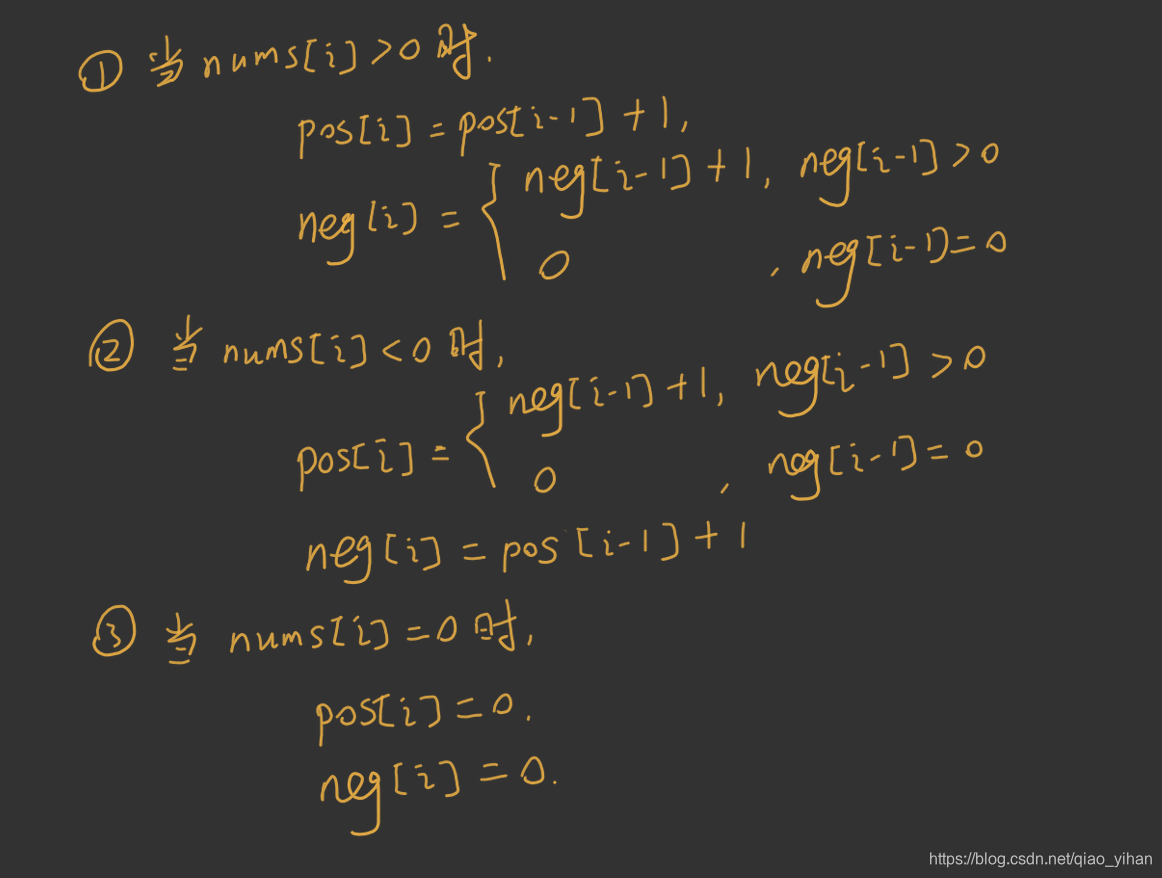 ① 当 nums[i]>0 时.
pos[i] = pos[i-1] + 1,
neg[i] = { neg[i-1] + 1, neg[i-1] > 0
0 , neg[i-1] = 0
② 当 nums[i] < 0 时,
pos[i] = { neg[i-1] + 1, neg[i-1] > 0
0 , neg[i-1] = 0
neg[i] = pos[i-1] + 1
③ 当 nums[i] = 0 时,
pos[i] = 0.
neg[i] = 0.
https://blog.csdn.net/qiao_yihan